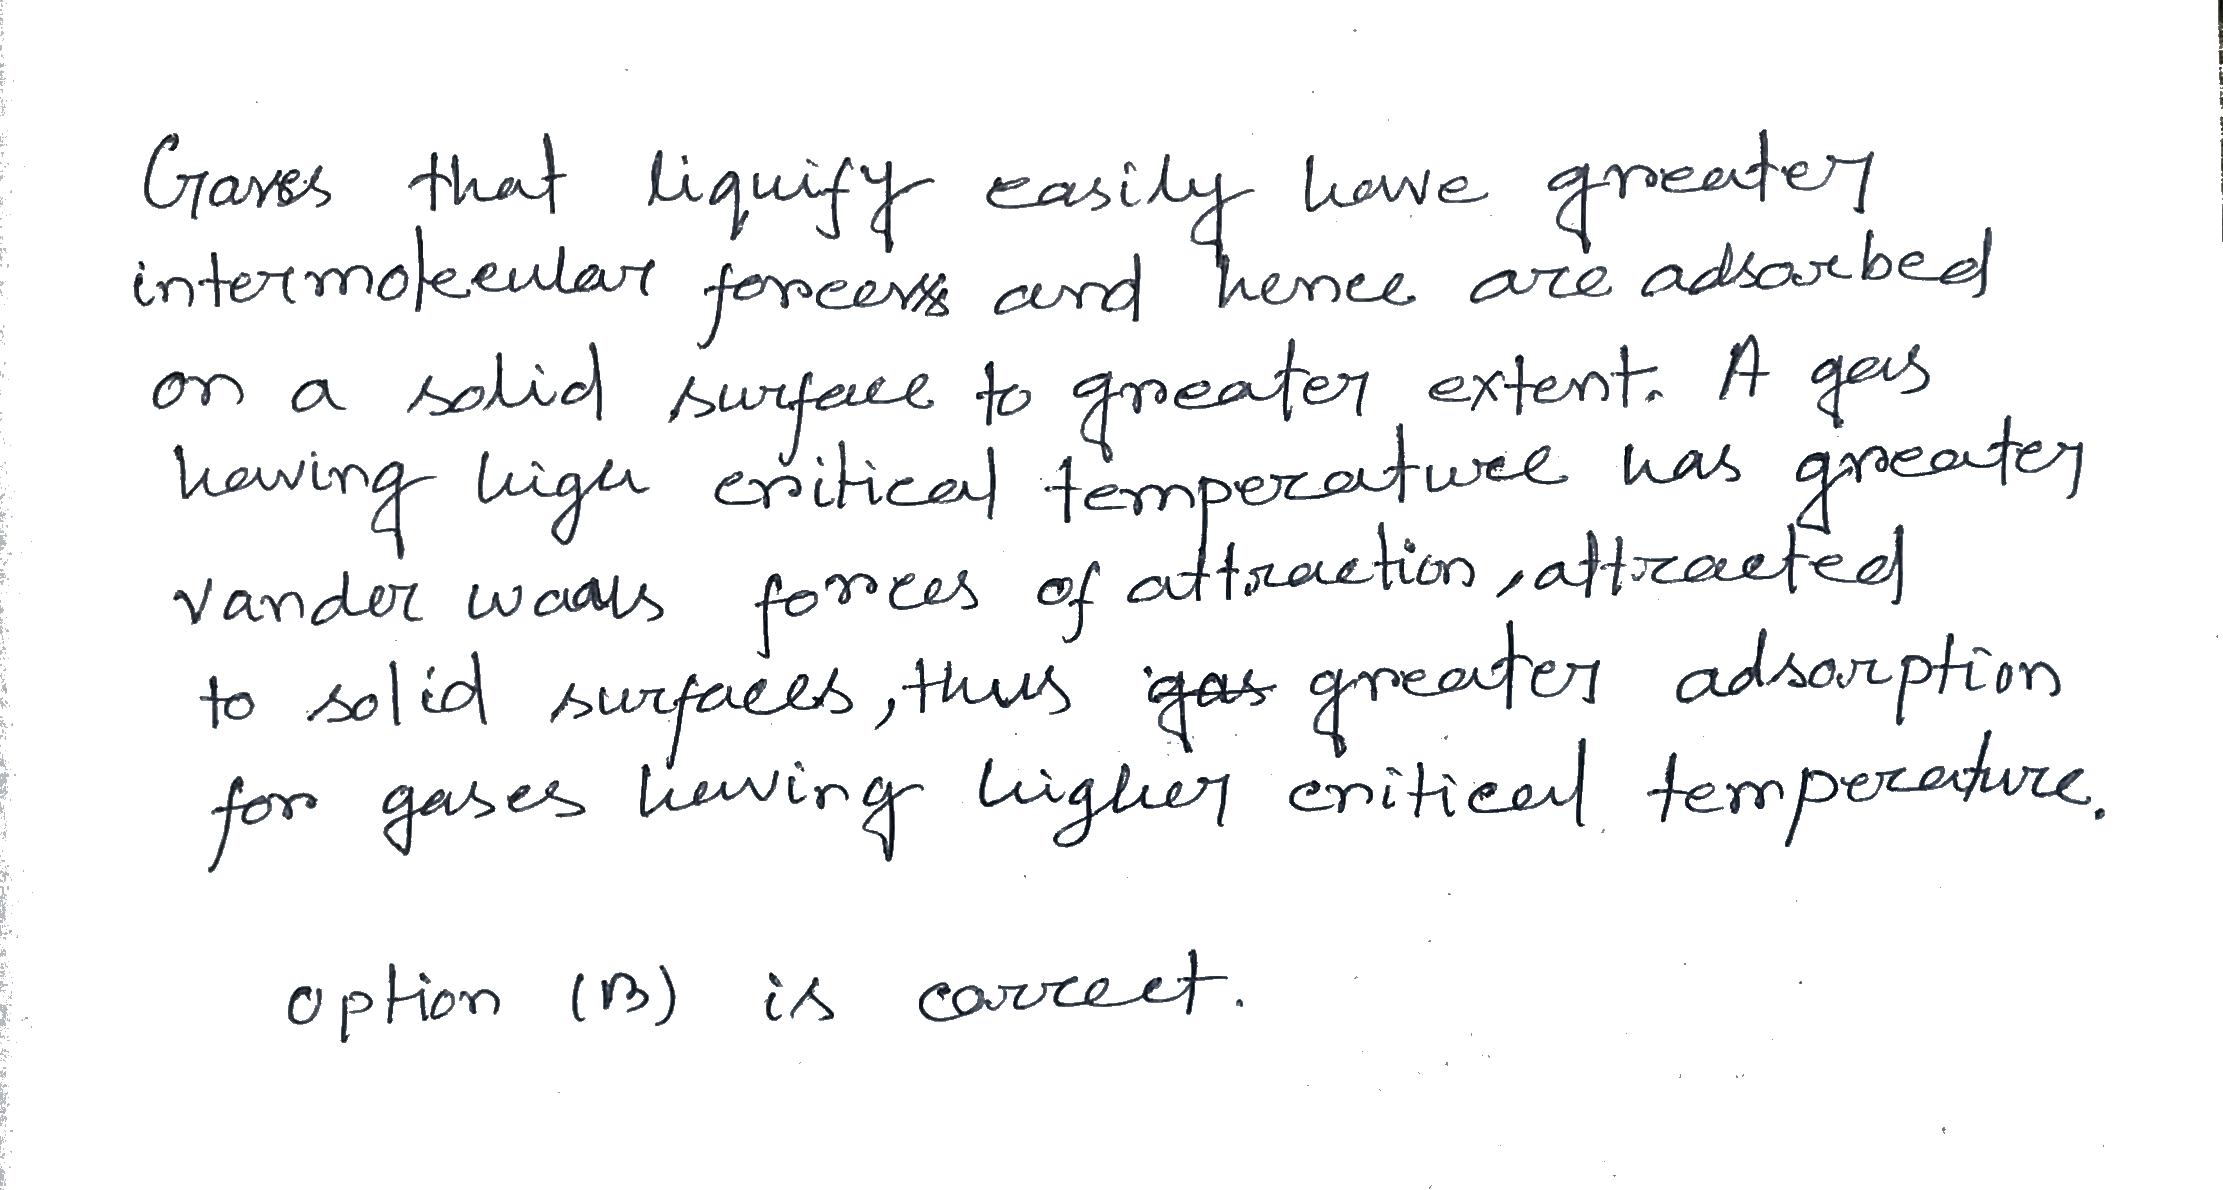 Gases that liquify easily have greater
intermolecular forces and hence are adsorbed
on a solid surface to greater extent. A gas
having high critical temperature has greater
vander waals forces of attraction, attracted
to solid surfaces, thus gas greater adsorption
for gases having higher critical temperature.
option (B) is correct.